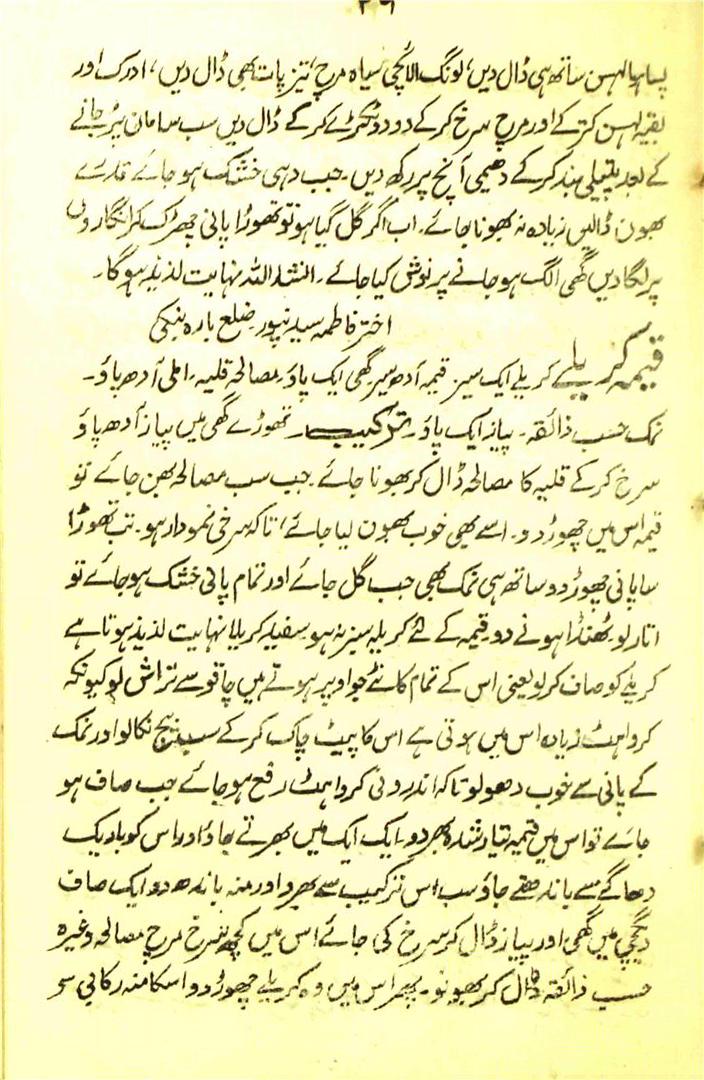 ۲۶
پسا ہوا لہسن ساتھ ہی ڈال دیں، لونگ الائچی سیاہ مرچ، تیز پات بھی ڈال دیں، ادرک اور
بقیہ لہسن کتر کے اور مرچ سرخ کر کے دو دو ٹکڑے کر کے ڈال دیں سب سامان پڑ جانے
کے بعد پتیلی بند کر کے دھیمی آنچ پر رکھ دیں۔ جب دہی خشک ہو جائے قدرے
بھون ڈالیں زیادہ نہ بھونا جائے۔ اب اگر گل گیا ہو تو تھوڑا پانی چھڑک کر انگاروں
پر لگا دیں گھی الگ ہو جانے پر نوش کیا جائے۔ انشاء اللہ نہایت لذیذ ہو گا۔
اختر فاطمہ سیدنپور ضلع بارہ بنکی
قیمہ کریلے کریلے ایک سیر قیمہ آدھ سیر گھی ایک پاؤ۔ مصالحہ قلیہ۔ املی آدھ پاؤ۔
نمک حسب ذائقہ۔ پیاز ایک پاؤ۔ ترکیب۔ تھوڑے گھی میں پیاز آدھ پاؤ
سرخ کر کے قلیہ کا مصالحہ ڈال کر بھونا جائے۔ جب سب مصالحہ بھن جائے تو
قیمہ اس میں چھوڑ دو۔ اسے بھی خوب بھون لیا جائے، تاکہ سرخی نمودار ہو۔ تب تھوڑا
سا پانی چھوڑ دو ساتھ ہی نمک بھی جب گل جائے اور تمام پانی خشک ہو جائے تو
اتار لو۔ ٹھنڈا ہونے دو۔ قیمہ کے لئے کریلہ سبز نہ ہو سفید کریلا نہایت لذیذ ہوتا ہے
کریلے کو صاف کر لو یعنی اس کے تمام کانٹے جو اوپر ہوتے ہیں چاقو سے تراش لو کیونکہ
کرواہٹ زیادہ اس میں ہوتی ہے اس کا پیٹ چاک کر کے سب بیج نکالو اور نمک
کے پانی سے خوب دھو لو تاکہ اندرونی کرواہٹ رفع ہو جائے جب صاف ہو
جائے تو اس میں قیمہ تیار شدہ بھر دو۔ ایک ایک میں بھرتے جاؤ اور اس کو باریک
دھاگے سے باندھتے جاؤ سب اس ترکیب سے بھرو اور منہ باندھ دو ایک صاف
دیگچی میں گھی اور پیاز ڈال کر سرخ کی جائے اس میں کچھ سرخ مرچ مصالحہ وغیرہ
حسب ذائقہ ڈال کر بھونو۔ پھر اس میں وہ کریلے چھوڑ دو اسکا منہ رکابی سے